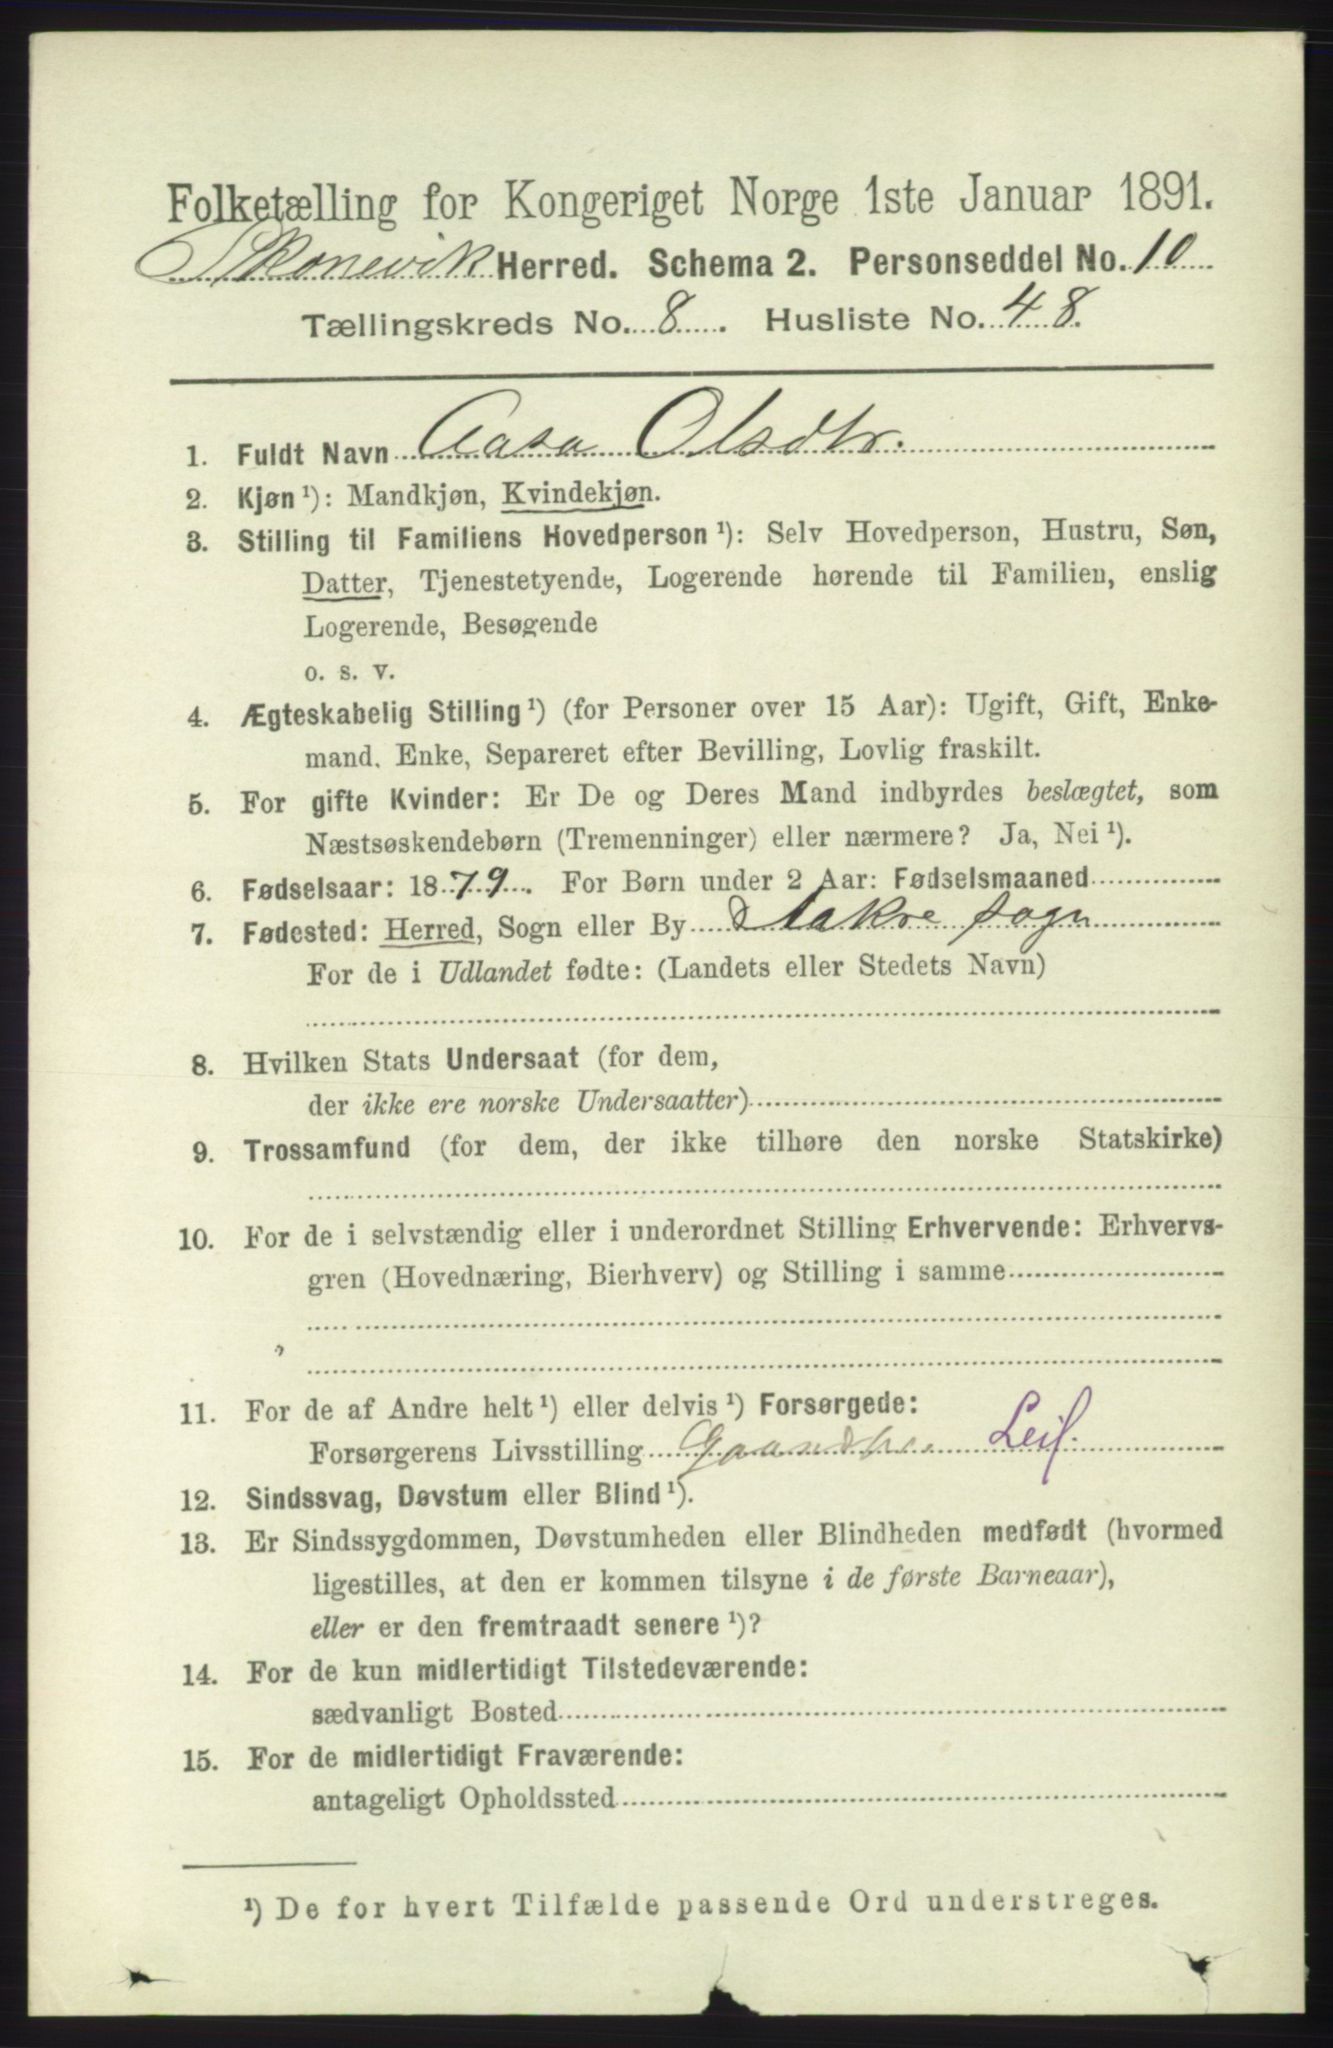 Folketælling for Kongeriget Norge 1ste Januar 1891.
Skonevik Herred. Schema 2. Personseddel No. 10
Tællingskreds No. 8. Husliste No. 48.
1. Fuldt Navn Aasa Olsdtr.
2. Kjøn ¹): Mandkjøn, Kvindekjøn.
3. Stilling til Familiens Hovedperson ¹): Selv Hovedperson, Hustru, Søn,
Datter, Tjenestetyende, Logerende hørende til Familien, enslig
Logerende, Besøgende
o. s. v.
4. Ægteskabelig Stilling ¹) (for Personer over 15 Aar): Ugift, Gift, Enke-
mand, Enke, Separeret efter Bevilling, Lovlig fraskilt.
5. For gifte Kvinder: Er De og Deres Mand indbyrdes beslægtet, som
Næstsøskendebørn (Tremenninger) eller nærmere? Ja, Nei ¹).
6. Fødselsaar: 1879. For Børn under 2 Aar: Fødselsmaaned
7. Fødested: Herred, Sogn eller By sogn
For de i Udlandet fødte: (Landets eller Stedets Navn)
8. Hvilken Stats Undersaat (for dem,
der ikke ere norske Undersaatter)
9. Trossamfund (for dem, der ikke tilhøre den norske Statskirke)
10. For de i selvstændig eller i underordnet Stilling Erhvervende: Erhvervs-
gren (Hovednæring, Bierhverv) og Stilling i samme
11. For de af Andre helt ¹) eller delvis ¹) Forsørgede:
Forsørgerens Livsstilling Leil.
12. Sindssvag, Døvstum eller Blind ¹).
13. Er Sindssygdommen, Døvstumheden eller Blindheden medfødt (hvormed
ligestilles, at den er kommen tilsyne i de første Barneaar),
eller er den fremtraadt senere ¹)?
14. For de kun midlertidigt Tilstedeværende:
sædvanligt Bosted
15. For de midlertidigt Fraværende:
antageligt Opholdssted
¹) De for hvert Tilfælde passende Ord understreges.